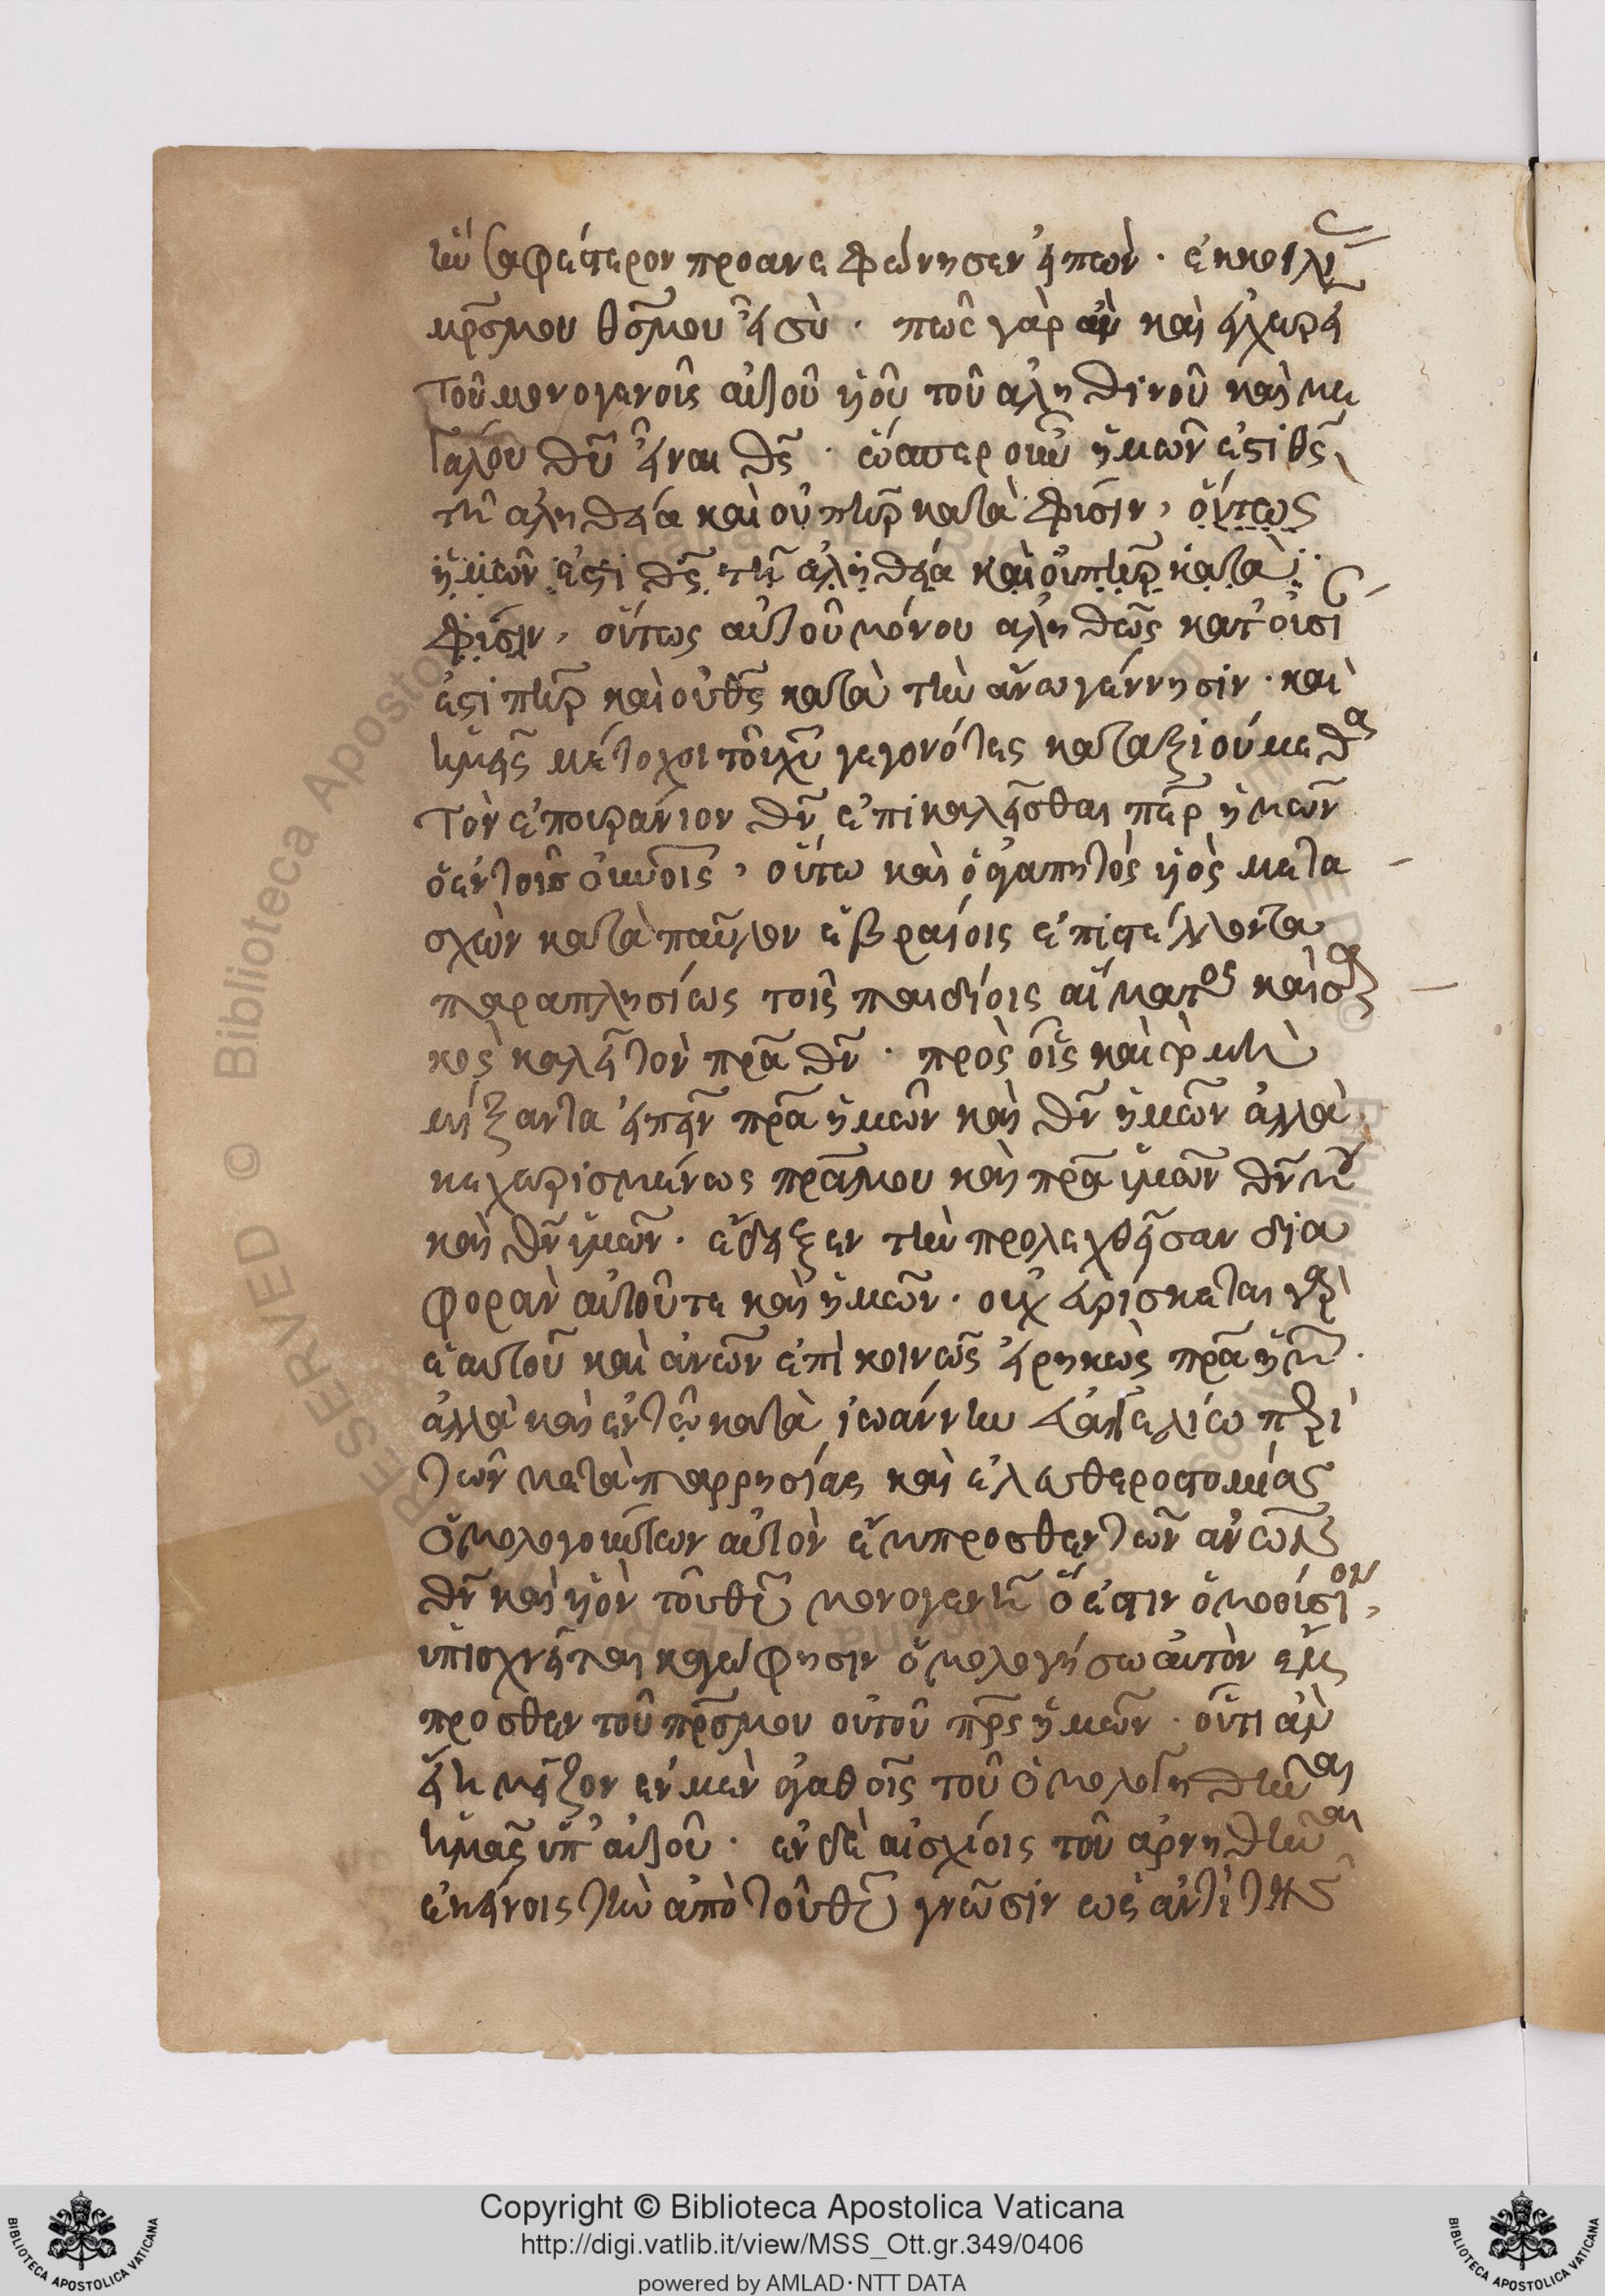 ἢν σαφέστερον προανεφώνησεν εἰπών· ἐκ κοιλί
μρ̅ς μου θς̅ μου εἶ σύ· πῶς γὰρ ἂν καὶ εὐχερεῖ
τοῦ μονογενοῦς αὐτοῦ υἱοῦ τοῦ ἀληθινοῦ καὶ με
γάλου θυ̅ εἶναι θς̅· ὥσπερ οὖν ἡμῶν ἐστὶ θς̅
τῇ ἀληθεία καὶ οὐ πηρ̅ κατὰ φύσιν, οὕτως
ἡμῶν ἐστὶ θς̅ τῇ ἀληθεία καὶ οὐ πηρ̅ κατὰ
φύσιν, οὕτως αὐτοῦ μόνου ἀληθῶς κατ' οὐσί
ἐστὶ πηρ̅ καὶ οὐ θς̅ κατὰ τὴν ἄνω γέννησιν· καὶ
ἡμεῖς μέτοχοι τοῦ χυ̅ γεγονότες καταξιούμεθα
τὸν ἐπουράνιον θν̅ ἐπικαλεῖσθαι περ̅ ἡμῶν
ὁ ἐν τοῖς οὐνοῖς, οὕτω καὶ ὁ ἀγαπητὸς υἱὸς μετα
σχὼν κατὰ παῦλον ἑβραίοις ἐπιστέλλοντα
παραπλησίως τοῖς παιδίοις αἵματος καὶ σαρ
κὸς καλεῖ τὸν πρα̅ θν̅· πρὸς οἷς καὶ τὸ μὴ
μίξαντα εἰπεῖν πρα̅ ἡμῶν καὶ θν̅ ἡμῶν ἀλλὰ
κεχωρισμένως πρα̅ μου καὶ πρα̅ ὑμῶν θν̅ μου
καὶ θν̅ ὑμῶν· ἔδειξεν τὴν προλεχθεῖσαν δια
φορὰν αὐτοῦ τε καὶ ἡμῶν· οὐχ εὑρίσκεται γὰρ
ἑαυτοῦ καὶ ἀνων̅ ἐπὶ κοινῶς εἰρηκὼς πρα̅ ἡμ
ἀλλὰ καὶ ἐν τῷ κατὰ ἰωάννην εὐαγγελίω περὶ
τῶν μετὰ παρρησίας καὶ ἐλευθεροστομίας
ὁμολογούντων αὐτὸν ἔμπροσθεν τῶν ἀνων̅
θν̅ καὶ υἱὸν τοῦ θυ̅ μονογενῆ ὅ ἐστιν ὁμοούσιον,
ὑπισχνεῖται κἀγώ φησιν ὁμολογήσω αὐτὸν ἔμ
προσθεν τοῦ πρς̅ μου οὐ τοῦ πρς̅ ἡμῶν· οὗ τί ἂν
εἴη μεῖζον ἐν μὲν ἀγαθοῖς τοῦ ὁμολογηθῆναι
ἡμᾶς ὑπ' αὐτοῦ· ἐν δὲ αἰσχίοις τοῦ ἀρνηθῆναι
ἐκείνοις τὴν ἀπὸ τοῦ θυ̅ γνῶσιν ὡς ἀντὶ τῆς
Copyright © Biblioteca Apostolica Vaticana
http://digi.vatlib.it/view/MSS_Ott.gr.349/0406
powered by AMLAD·NTT DATA